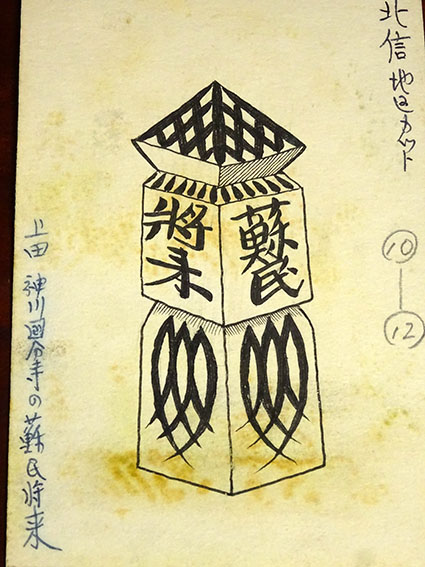 北信地区カット
蘇民
將来
⑩
⑫
上田 神川国分寺の蘇民将来